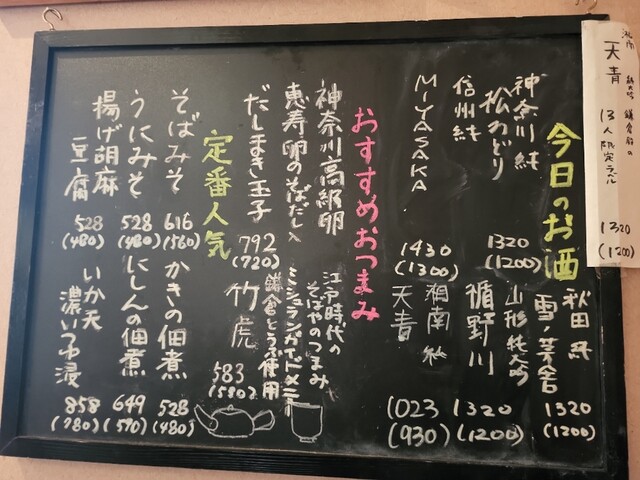 湘南
天青
鎌倉市の
13人限定ラベル
1320
(1200)
今日のお酒
神奈川 純
松みどり
1320
(1200)
秋田 純
雪の茅舎
1320
(1200)
信州 純
MIYASAKA
1430
(1300)
山形 純大吟
楯野川
1320
(1200)
湘南 純
天青
1023
(930)
おすすめおつまみ
神奈川高級卵
恵寿卵のそばだし入
だしまき玉子
792
(720)
江戸時代の
そばやのつまみ
ミシュランガイドメニュー
鎌倉とうふ使用
竹虎
583
(530)
定番人気
そばみそ
616
(560)
うにみそ
528
(480)
揚げ胡麻
豆腐
528
(480)
かきの佃煮
528
(480)
にしんの佃煮
649
(590)
いか天
濃いつゆ浸
858
(780)